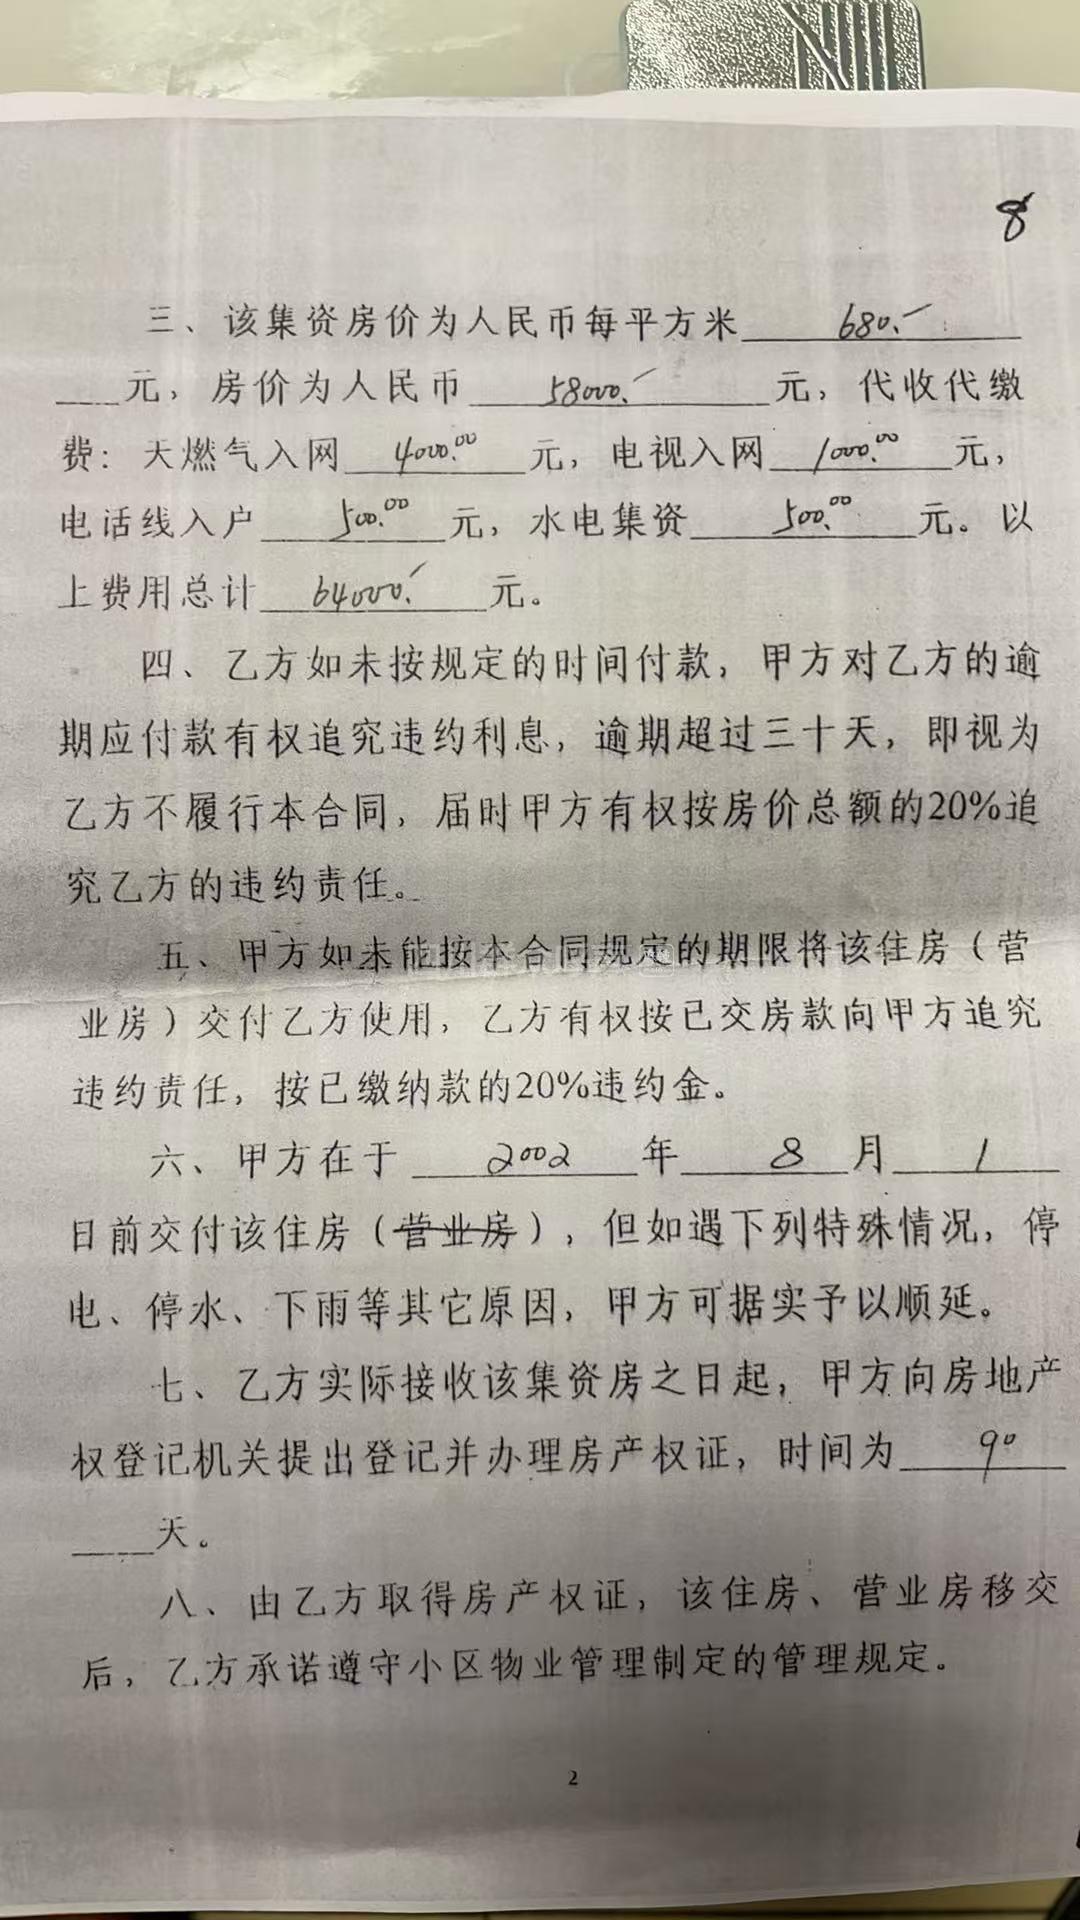 8
三、该集资房价为人民币每平方米 680.
元，房价为人民币 58000. 元，代收代缴
费：天燃气入网 4000.00 元，电视入网 1000.00 元，
电话线入户 500.00 元，水电集资 500.00 元。以
上费用总计 64000. 元。
四、乙方如未按规定的时间付款，甲方对乙方的逾
期应付款有权追究违约利息，逾期超过三十天，即视为
乙方不履行本合同，届时甲方有权按房价总额的20%追
究乙方的违约责任。
五、甲方如未能按本合同规定的期限将该住房（营
业房）交付乙方使用，乙方有权按已交房款向甲方追究
违约责任，按已缴纳款的20%违约金。
六、甲方在于 2002 年 8 月 1
日前交付该住房（营业房），但如遇下列特殊情况，停
电、停水、下雨等其它原因，甲方可据实予以顺延。
七、乙方实际接收该集资房之日起，甲方向房地产
权登记机关提出登记并办理房产权证，时间为 90
天。
八、由乙方取得房产权证，该住房、营业房移交
后，乙方承诺遵守小区物业管理制定的管理规定。
2